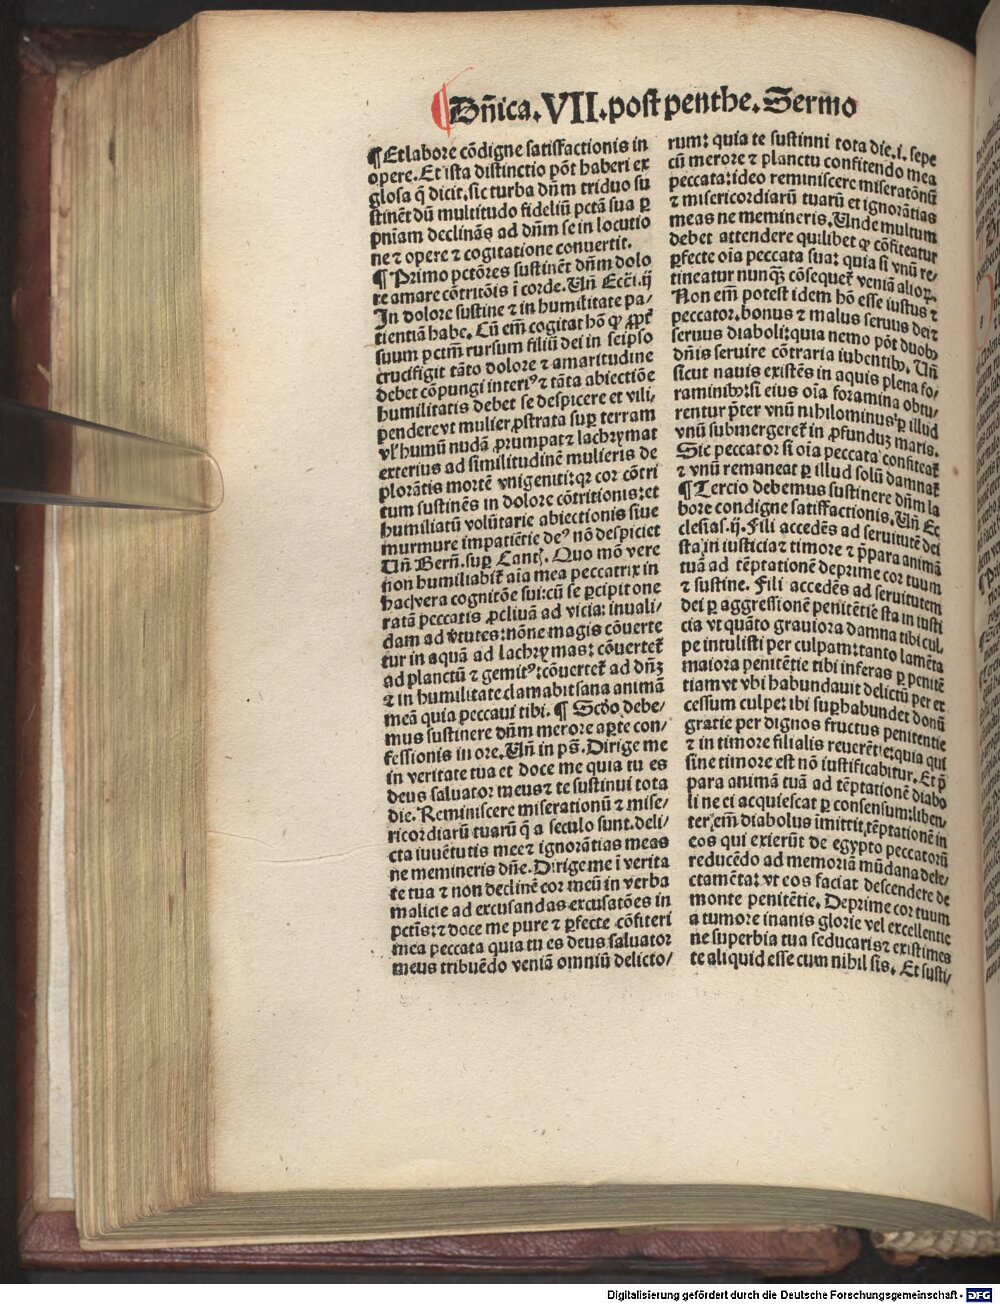 ¶ Dñica.VII.post penthe.Sermo
¶ Et labore cõdigne satisfactionis in
opere. Et ista distinctio põt haberi ex
glosa q̃ dicit. sic turba dñm triduo su
stinẽt dũ multitudo fideliũ pctã sua ꝑ
pniam declinãs ad dñm se in locutio
ne ⁊ opere ⁊ cogitatione conuertit.
¶ Primo pctõres sustinẽt dñm dolo
re amare cõtritõis ĩ corde. Uñ Ecci̅.ij
In dolore sustine ⁊ in humilitate pa/
tientiã habe. Cũ em̃ cogitat hõ ꝙ ꝓpt̃
suum pctm̃ rursum filiũ dei in seipso
crucifigit tãto dolore ⁊ amaritudine
debet cõpungi interiꝰ ⁊ tãta abiectiõe
humilitatis debet se despicere et vili
pendere vt mulier ꝓstrata suꝑ terram
vl' humũ nudã ꝓrumpat ⁊ lachrymat
exterius ad similitudinẽ mulieris de
plorãtis mortẽ vnigeniti: qꝛ cor cõtri
tum sustinẽs in dolore cõtritionis: et
humiliatũ volũtarie abiectionis siue
murmure impatiẽtie deꝰ nõ despiciet
Uñ Berñ. suꝑ Cant̃. Quo mõ vere
non humiliabit̃ aĩa mea peccatrix in
hac vera cognitõe sui: cũ se ꝑcipit one
ratã peccatis ꝓcliuã ad vicia: inuali/
dam ad ṽtutes: nõne magis cõuerte
tur in aquã ad lachrymas: cõuertet̃
ad planctũ ⁊ gemitꝰ: cõuertet̃ ad dñ3
⁊ in humilitate clamabit sana animã
meã quia peccaui tibi. ¶ Scðo debe/
mus sustinere dñm merore aꝑte con/
fessionis in ore. Uñ in ps̃. Dirige me
in veritate tua et doce me quia tu es
deus saluator meus ⁊ te sustinui tota
die. Reminiscere miserationũ ⁊ mise/
ricordiarũ tuarũ q̃ a seculo sunt. deli/
cta iuuẽtutis mee ⁊ ignorãtias meas
ne memineris dñe. Dirige me ĩ verita
te tua ⁊ non declinẽ cor meũ in verba
malicie ad excusandas excusatões in
pctĩs: ⁊ doce me pure ⁊ ꝑfecte cõfiteri
mea peccata quia tu es deus saluator
meus tribuẽdo veniã omniũ delicto/
rum: quia te sustinui tota die.i. sepe
cũ merore ⁊ planctu confitendo mea
peccata: ideo reminiscere miseratõnũ
⁊ misericordiarũ tuarũ et ignorãtias
meas ne memineris. Unde multum
debet attendere quilibet ꝙ cõfiteatur
ꝑfecte oĩa peccata sua: quia si vnũ re/
tineatur nunqȝ cõsequet̃ veniã alioꝝ.
Non em̃ potest idem hõ esse iustus ⁊
peccator. bonus ⁊ malus seruus dei ⁊
seruus diaboli: quia nemo põt duobꝰ
dñis seruire cõtraria iubentibꝰ. Uñ
sicut nauis existẽs in aquis plena fo/
raminibꝰ: si eius oĩa foramina obtu/
rentur p̃ter vnũ nihilominus ꝑ illud
vnũ submergeret̃ in ꝓfunduȝ maris.
Sic peccator si oĩa peccata confiteat̃
⁊ vnũ remaneat ꝑ illud solũ damnat̃
¶ Tercio debemus sustinere dñm la
bore condigne satisfactionis. Uñ Ec
clesias.ij. Fili accedẽs ad seruitutẽ dei
sta in iusticia ⁊ timore ⁊ p̃para animã
tuã ad tẽptationẽ deprime cor tuum
⁊ sustine. Fili accedẽs ad seruitutem
dei ꝑ aggressionẽ penitẽtiẽ sta in iusti
cia vt quãto grauiora damna tibi cul
pe intulisti per culpam: tanto lamẽta
maiora penitẽtie tibi inferas ꝑ penitẽ
tiam vt vbi habundauit delictũ per ex
cessum culpe: ibi suꝑhabundet donũ
gratie per dignos fructus penitentie
⁊ in timore filialis reuerẽtie: quia qui
sine timore est nõ iustificabitur. Et p̃
para animã tuã ad tẽptationẽ diabo
li ne ei acquiescat ꝑ consensum: liben/
ter em̃ diabolus ĩmittit tẽptationẽ in
eos qui exierũt de egypto peccatorũ
reducẽdo ad memoriã mũdana dele/
ctamẽta: vt eos faciat descendere de
monte penitẽtie. Deprime cor tuum
a tumore inanis glorie vel excellentie
ne superbia tua seducaris ⁊ existimes
te aliquid esse cum nihil sis. Et susti/
Digitalisierung gefördert durch die Deutsche Forschungsgemeinschaft - DFG